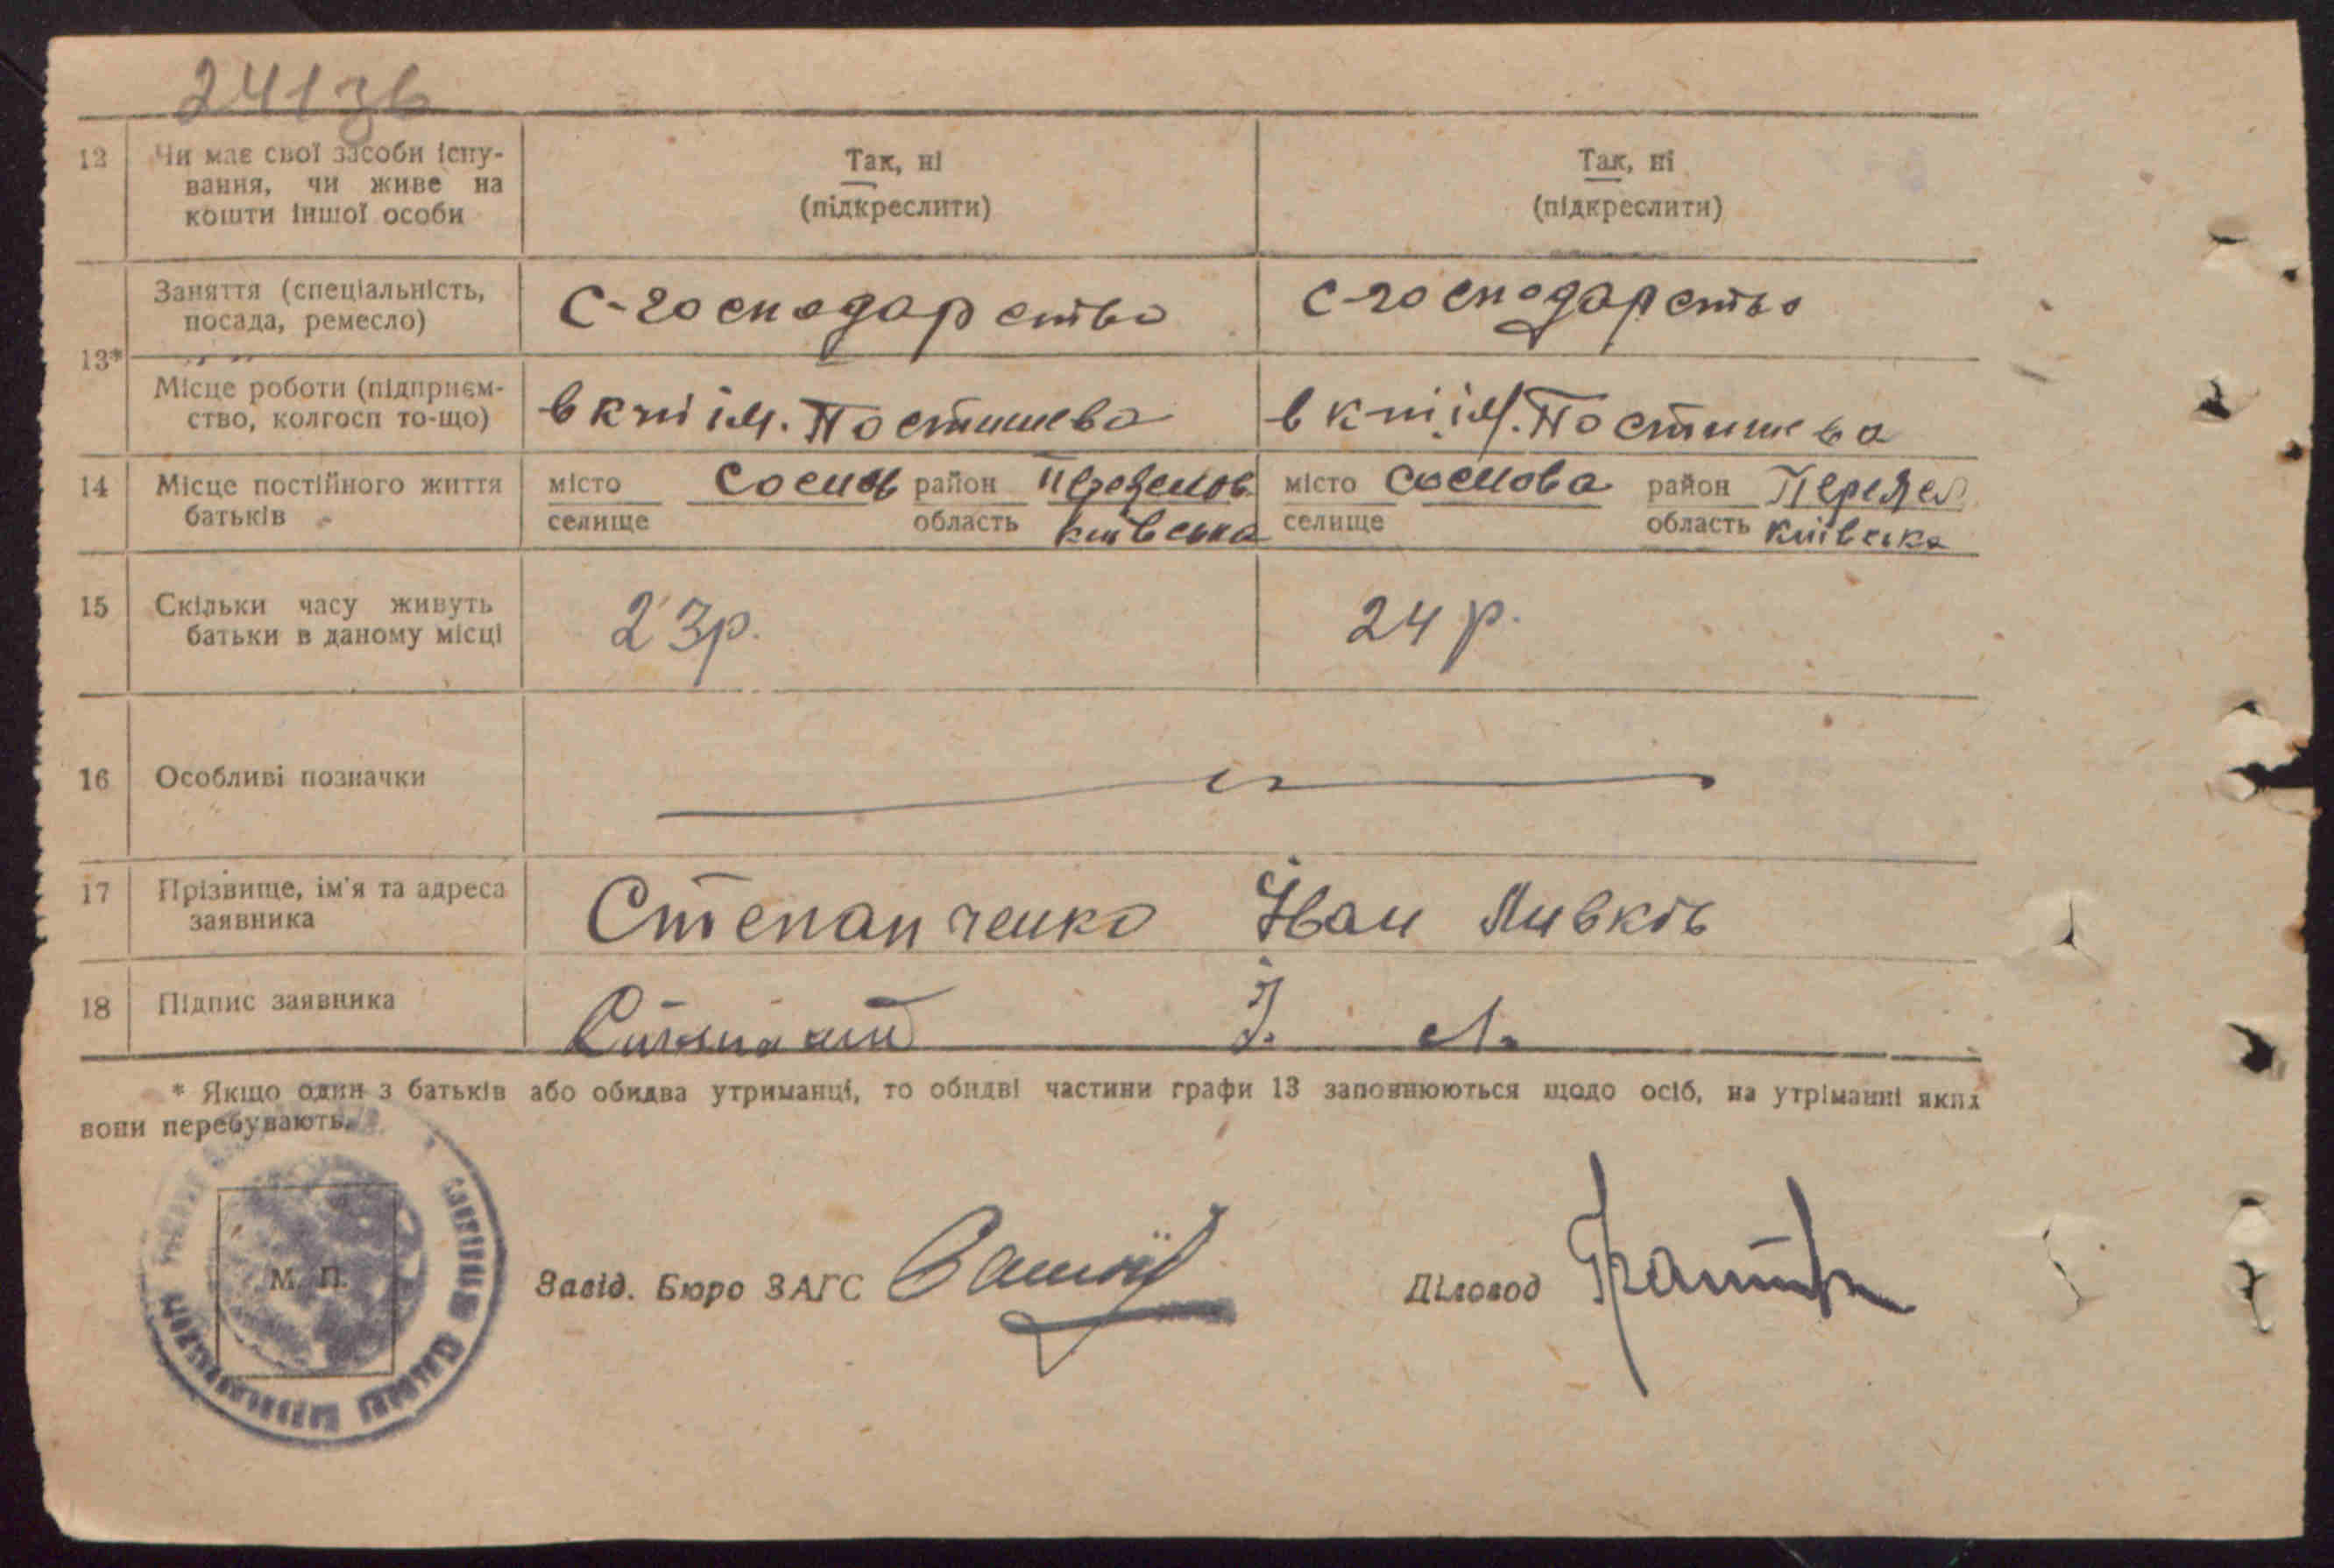 241зв
12 Чи має свої засоби існу-
вання, чи живе на
кошти іншої особи
Так, ні
(підкреслити)
Так, ні
(підкреслити)
13*
Заняття (спеціальність,
посада, ремесло)
С-господарство
С-господарство
Місце роботи (підприєм-
ство, колгосп то-що)
в кгпі ім. Постишева
в кгпі ім. Постишева
14 Місце постійного життя
батьків
місто Соснов район
селище область Київська
місто Соснова район Переял
селище область Київська
15 Скільки часу живуть
батьки в даному місці
23р.
24 р.
16 Особливі позначки
17 Прізвище, ім'я та адреса
заявника
Степанченко Іван Ливков
18 Підпис заявника
І. Л.
* Якщо один з батьків або обидва утриманці, то обидві частини графи 13 заповнюються щодо осіб, на утріманні яких
вони перебувають.
М. П.
Завід. Бюро ЗАГС
Діловод